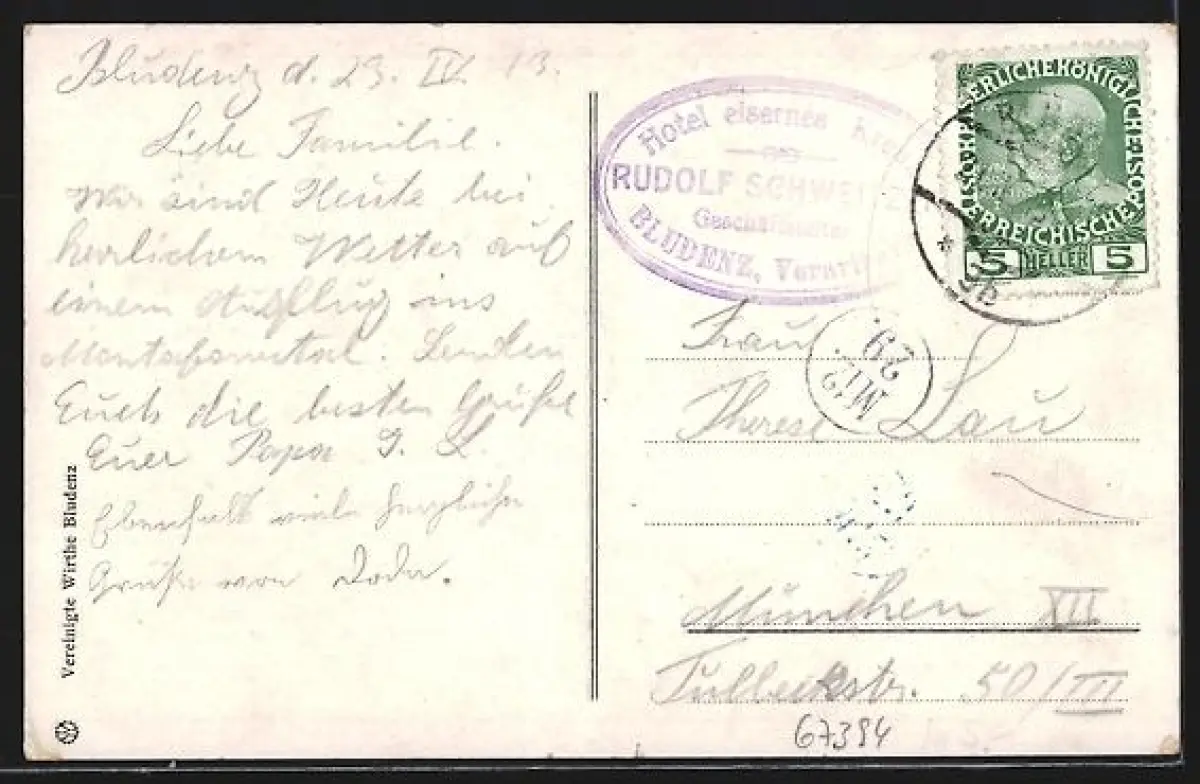 Bludenz d. 23. IV. 13.
Liebe Familie.
Wir sind Heute bei
herrlichem Wetter auf
einem Ausflug ins
Montafonertal. Senden
Euch die besten Grüße
Euer Papa J. L.
Ebenfalls viele herzliche
Grüße von
Vereinigte Wirthe Bludenz
Hotel eisernes
RUDOLF SCHWEITZ
BLUDENZ,
KAISERLICHEKÖNIGLICHEÖSTERREICHISCHEPOST
5 HELLER 5
9b
Mü2.
29.
Frau
Therese Lau
München XII
Tulbeckstr. 50/III
67394